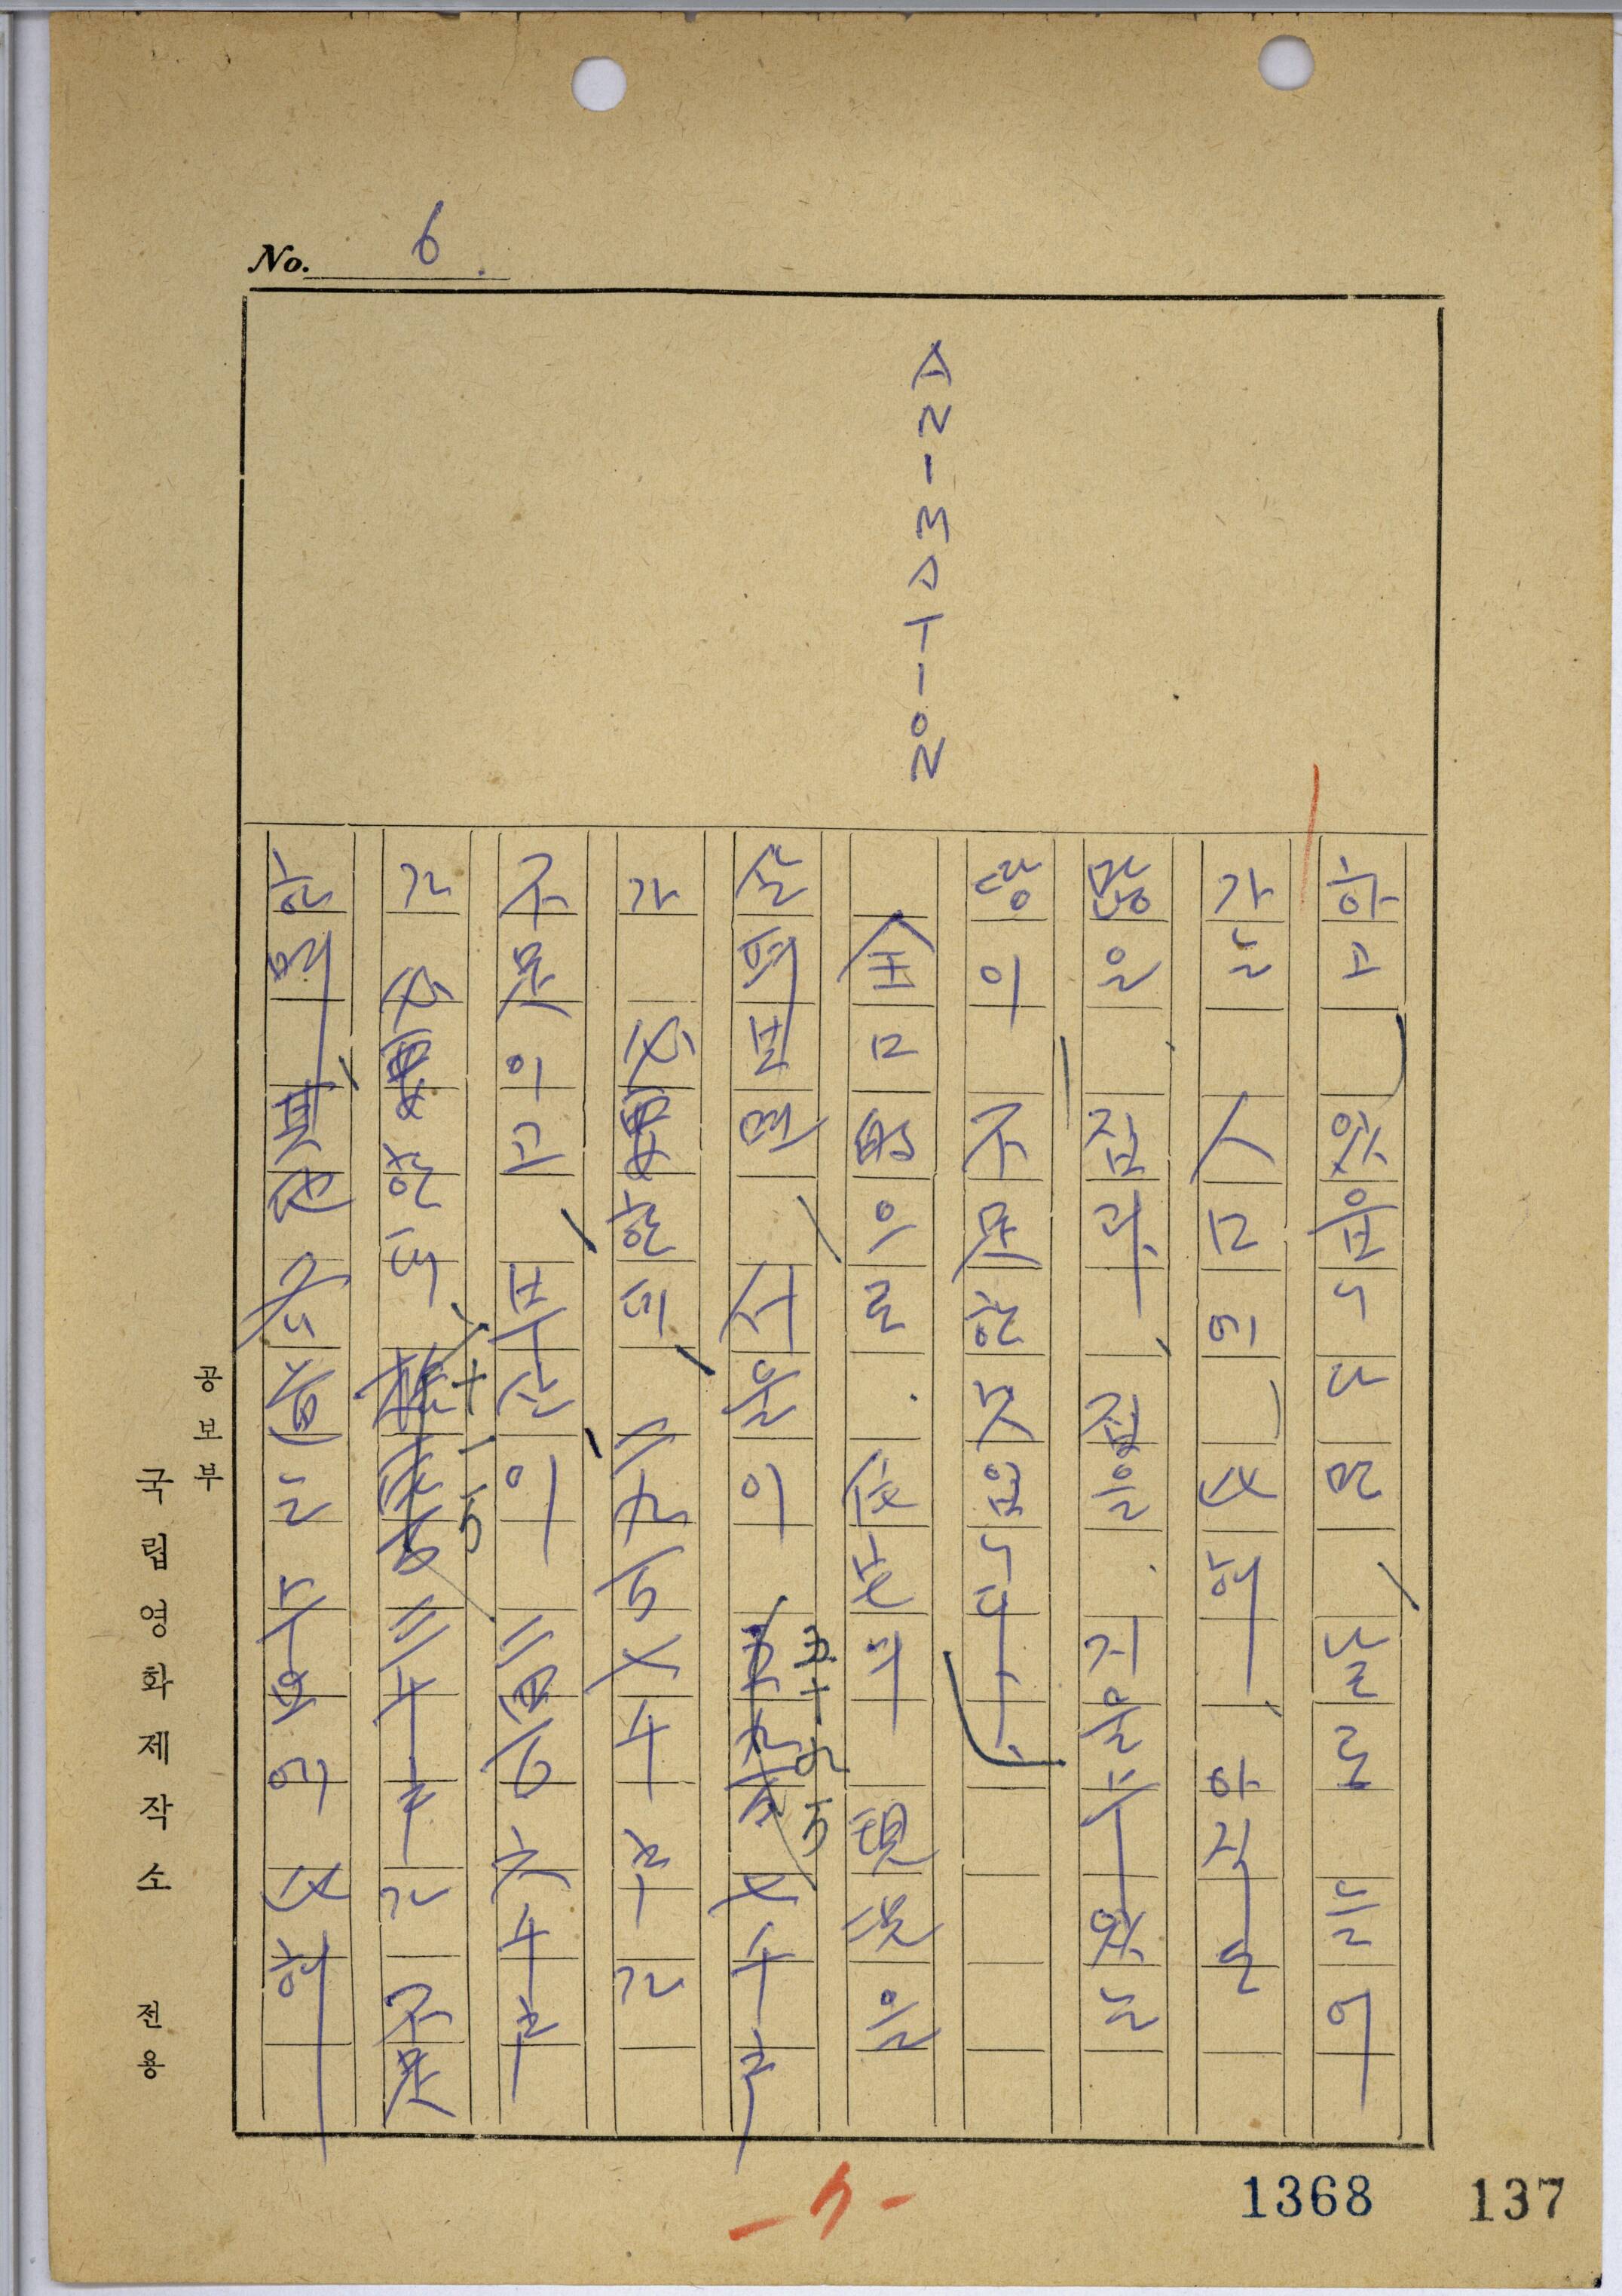 No. 6.
ANIMATION
하고 있읍니다만, 날로 늘어
가는 人口에 比해, 아직은
많은 집과, 집을 지을 수 있는
땅이 不足한 것입니다.
全国的으로 住宅의 現況을
살펴보면, 서울이 五十九万 七千구
가 必要한데, 二九万七千구가
不足이고, 부산이 六千구
가 必要한데, 十一万 三千구가 不足
하며, 其他 各道는 수요에 比해
공보부
국립영화제작소 전용
-5-
1368
137